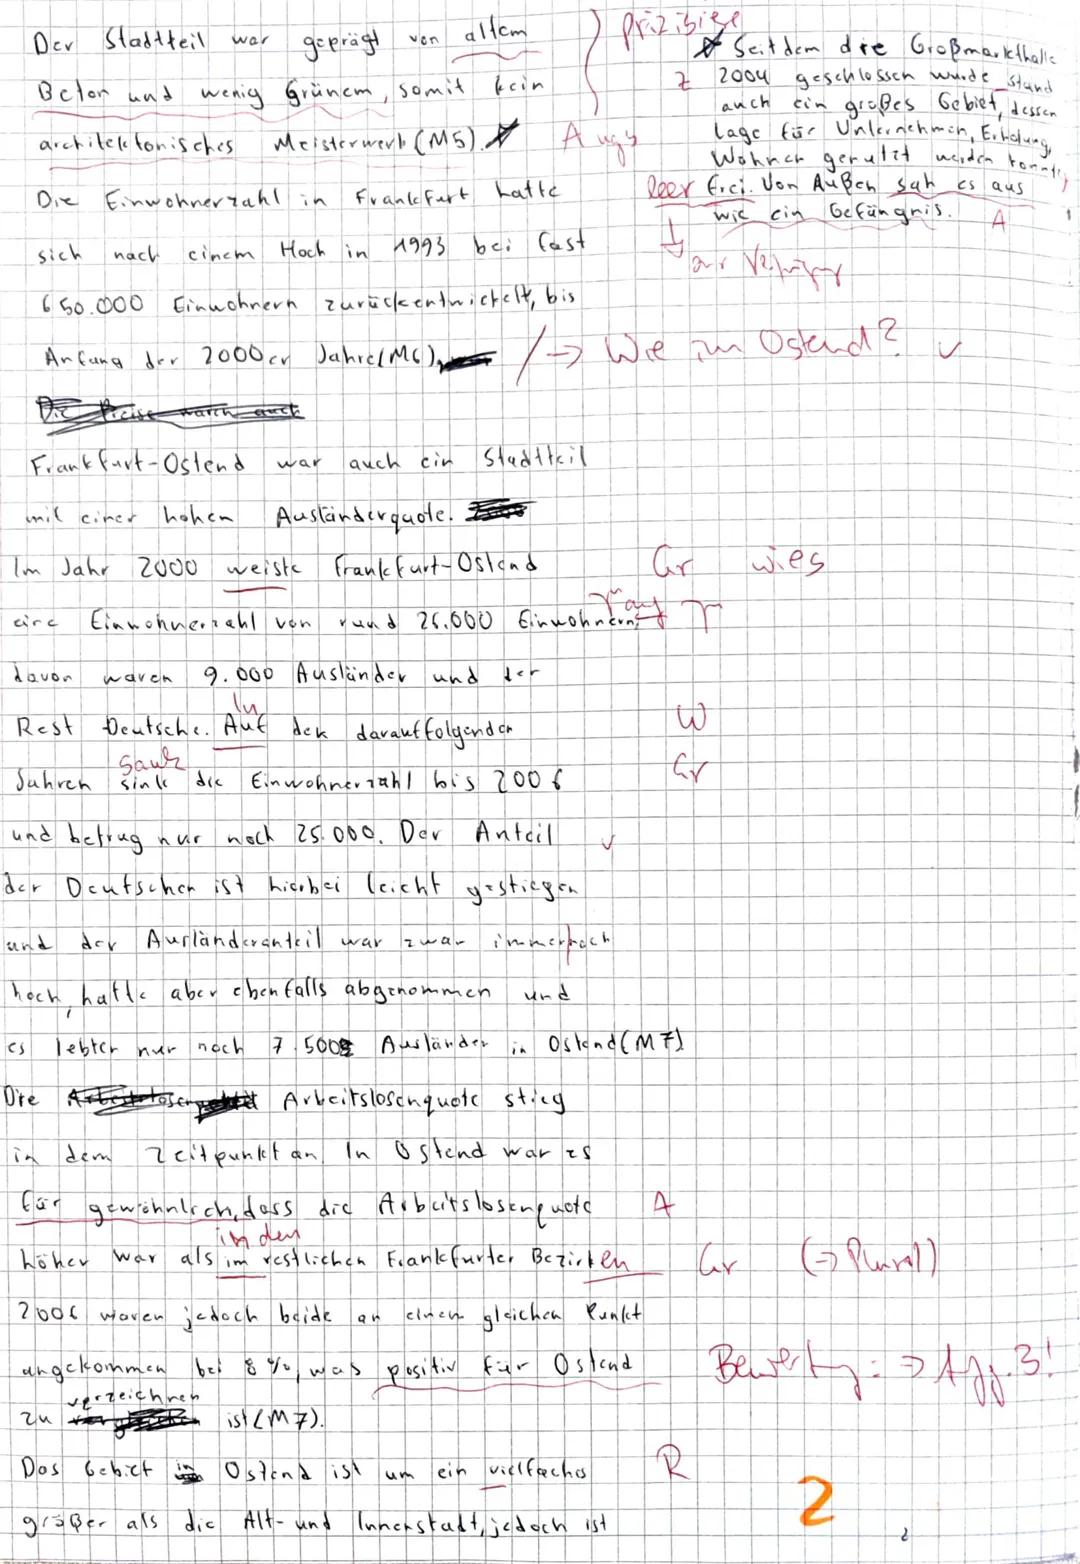 Der Stadtteil war geprägt von altem
Beton und wenig Grünem, somit kein
architektonisches Meisterwerk (M5).
Präzision
A
Seitdem die Großmarkthalle
Z 2004 geschlossen wurde stand
auch ein großes Gebiet, dessen
Lage für Unternehmen, Erholung,
Wohnen genutzt werden konnte,
leer frei. Von Außen sah es aus
wie ein Gefängnis. A
zur Verfügung
Die Einwohnerzahl in Frankfurt hatte
sich nach einem Hoch in 1993 bei fast
650.000 Einwohnern zurückentwickelt, bis
Anfang der 2000er Jahre (M6), / → Wie im Ostend? ✓
Die Preise waren auch
Frankfurt-Ostend war auch ein Stadtteil
mit einer hohen Ausländerquote.
Im Jahr 2000 weiste Frankfurt-Ostend Gr wies
eine Einwohnerzahl von rund 26.000 Einwohnern, auf
davon waren 9.000 Ausländer und der
In
Rest Deutsche. Auf den darauffolgenden W
sank
Jahren sink die Einwohnerzahl bis 2006 Gr
und betrug nur noch 25.000. Der Anteil ✓
der Deutschen ist hierbei leicht gestiegen
und der Ausländeranteil war zwar immernoch
hoch, hatte aber ebenfalls abgenommen und
es lebten nur noch 7.500 Ausländer in Ostend (M7)
Die Arbeitslosenquote stieg
in dem Zeitpunkt an. In Ostend war es
für gewöhnlich, dass die Arbeitslosenquote A
in den
höher war als im restlichen Frankfurter Bezirken Gr (→ Plural)
2006 waren jedoch beide an einen gleichen Punkt
angekommen bei 8%, was positiv für Ostend Bewertung: → Afg. 3!
verzeichnen
zu ist (M7).
Das Gebiet in Ostend ist um ein vielfaches R
größer als die Alt- und Innenstadt, jedoch ist
2
2